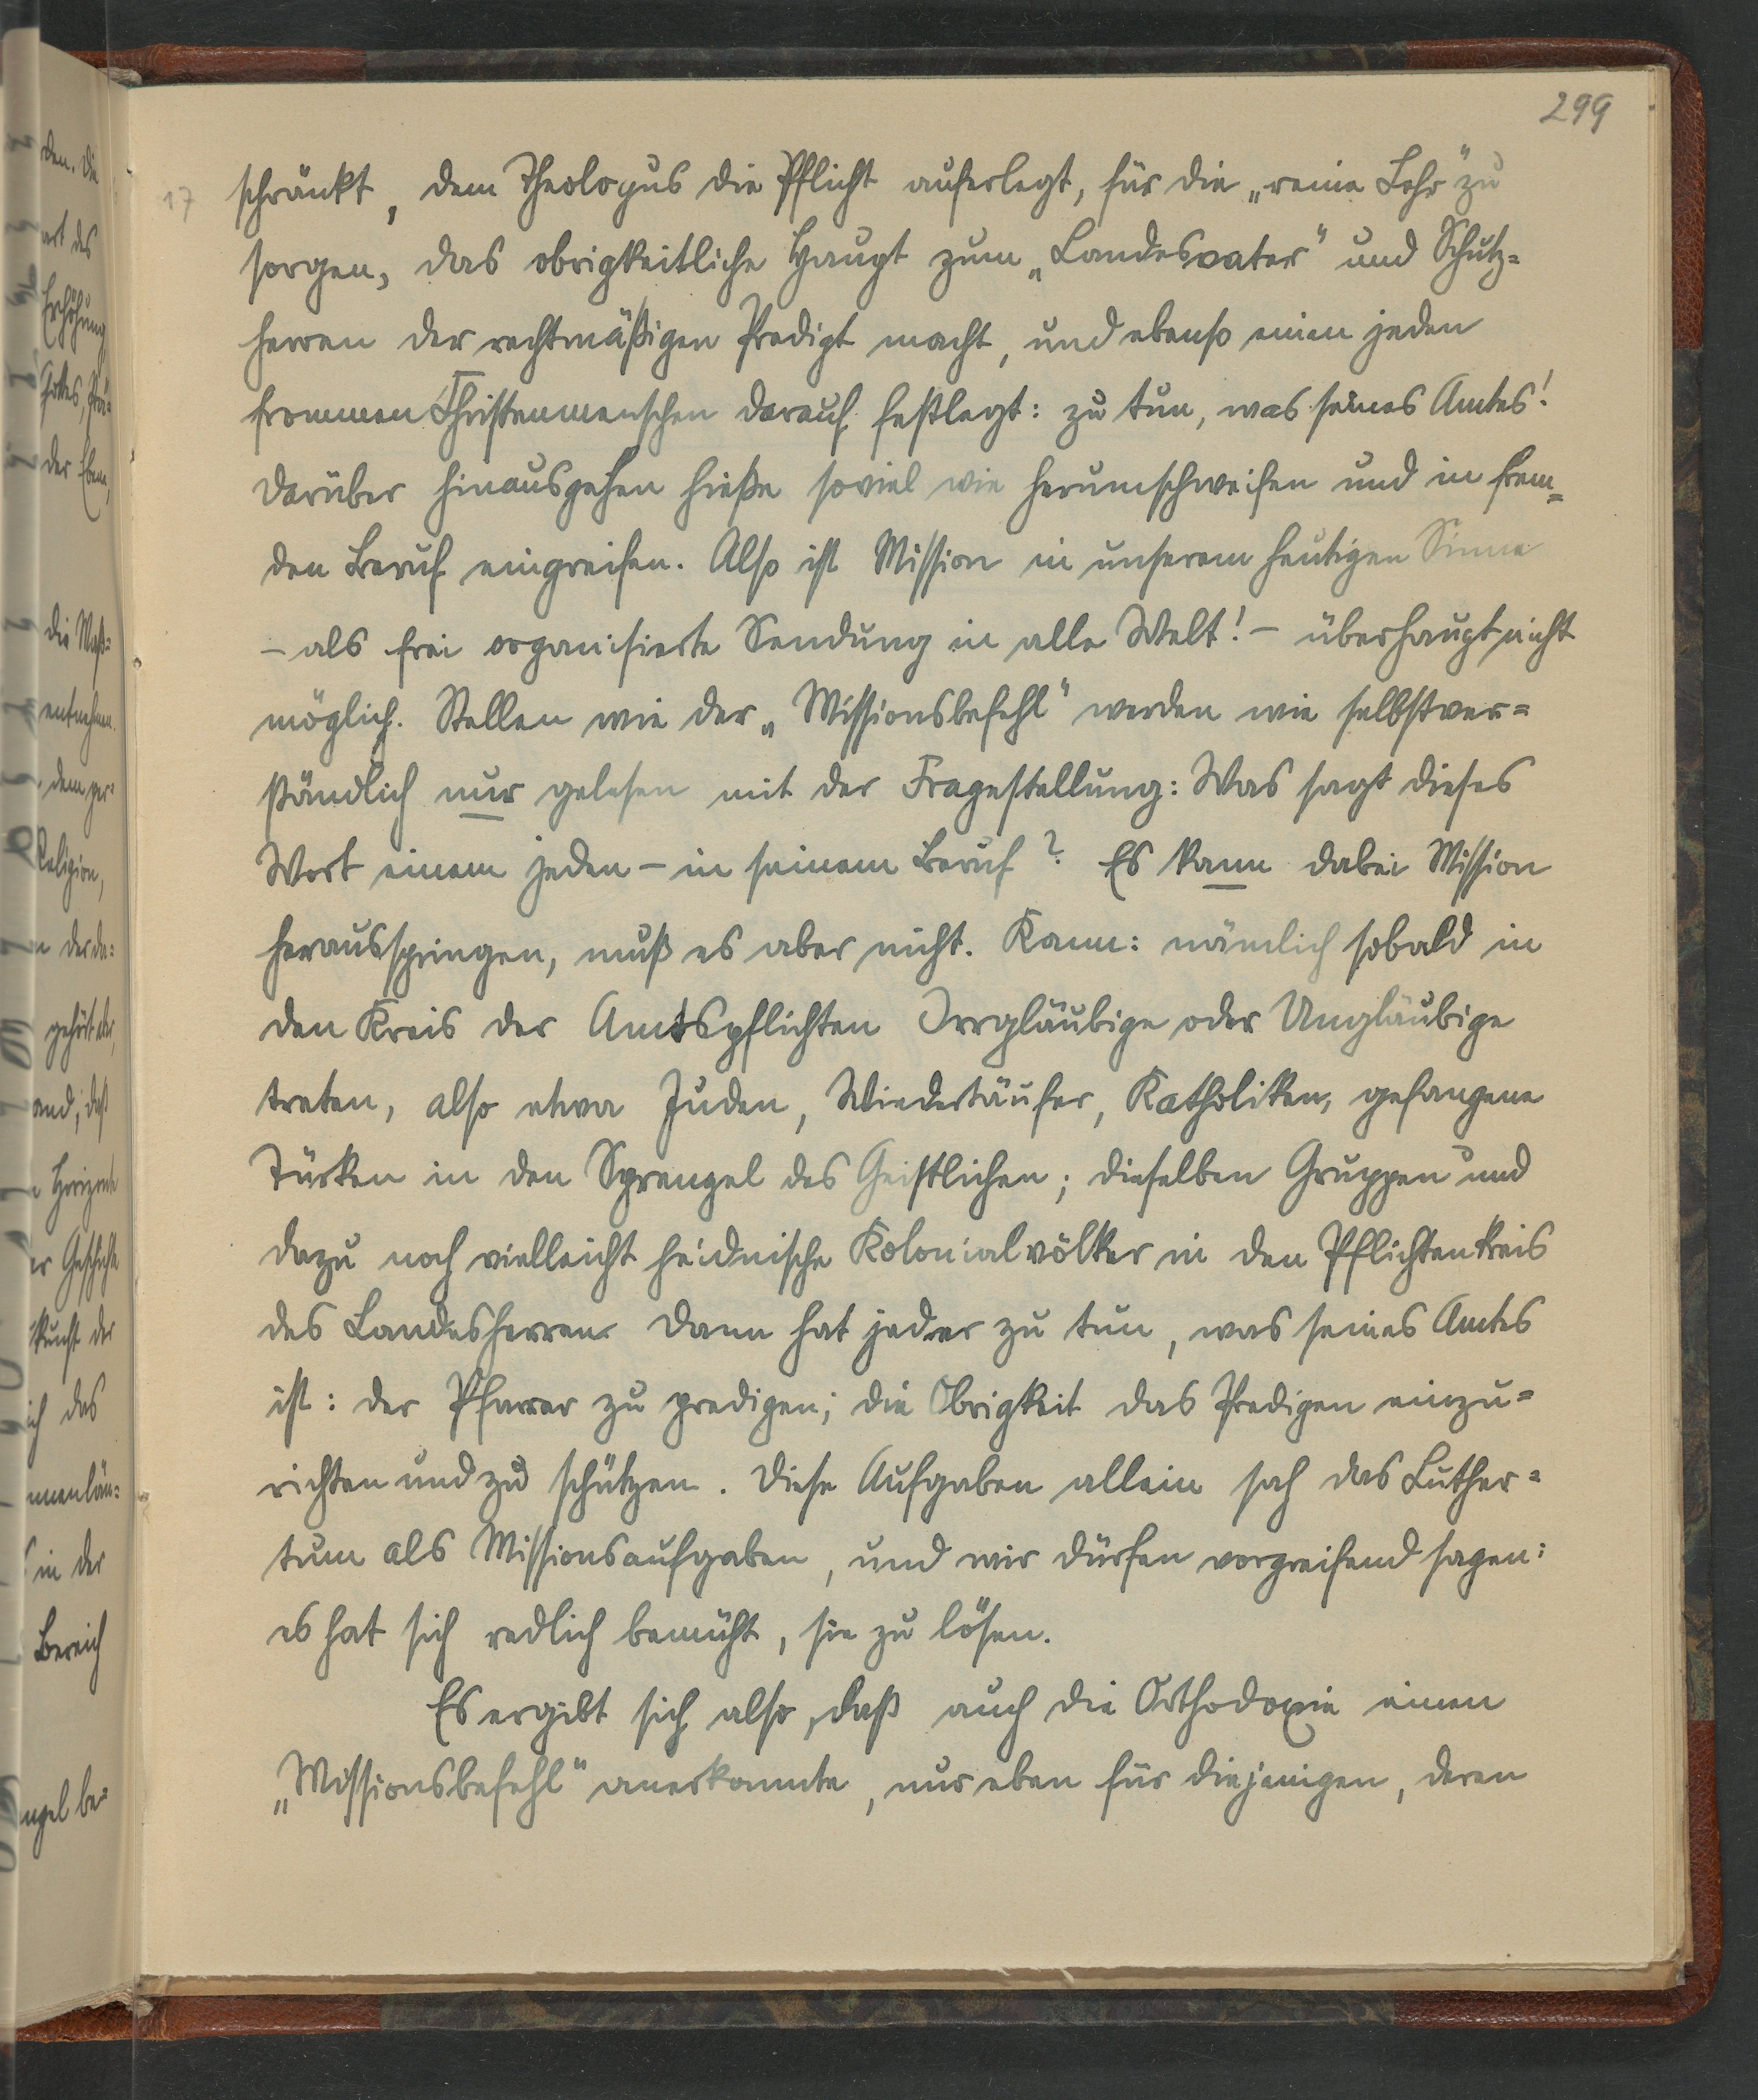 299
17
schränkt, dem Theologus die Pflicht auferlegt, für die „reine Lehr" zu
sorgen, das obrigkeitliche Haupt zum „Landesvater" und Schutz=
herren der rechtmäßigen Predigt macht, und ebenso einen jeden
frommen Christenmenschen darauf festlegt: zu tun, was seines Amtes!
Darüber hinausgehen hieße soviel wie herumschweifen und in frem=
den Beruf eingreifen. Also ist Mission in unserem heutigen Sinne
– als frei organisierte Sendung in alle Welt! – überhaupt nicht
möglich. Stellen wie der „Missionsbefehl" werden wie selbstver=
ständlich nur gelesen mit der Fragestellung: Was sagt dieses
Wort einem jeden – in seinem Beruf? Es kann dabei Mission
herausspringen, muß es aber nicht. Kann: nämlich sobald in
den Kreis der Amtspflichten Irrgläubige oder Ungläubige
treten, also etwa Juden, Wiedertäufer, Katholiken, gefangene
Türken in den Sprengel des Geistlichen; dieselben Gruppen und
dazu noch vielleicht heidnische Kolonialvölker in den Pflichtenkreis
des Landesherren. Dann hat jeder zu tun, was seines Amtes
ist: der Pfarrer zu predigen; die Obrigkeit das Predigen einzu=
richten und zu schützen. Diese Aufgaben allein sah das Luther=
tum als Missionsaufgaben, und wir dürfen vorgreifend sagen:
es hat sich redlich bemüht, sie zu lösen.
Es ergibt sich also, daß auch die Orthodoxie einen
„Missionsbefehl" anerkannte, nur eben für diejenigen, deren